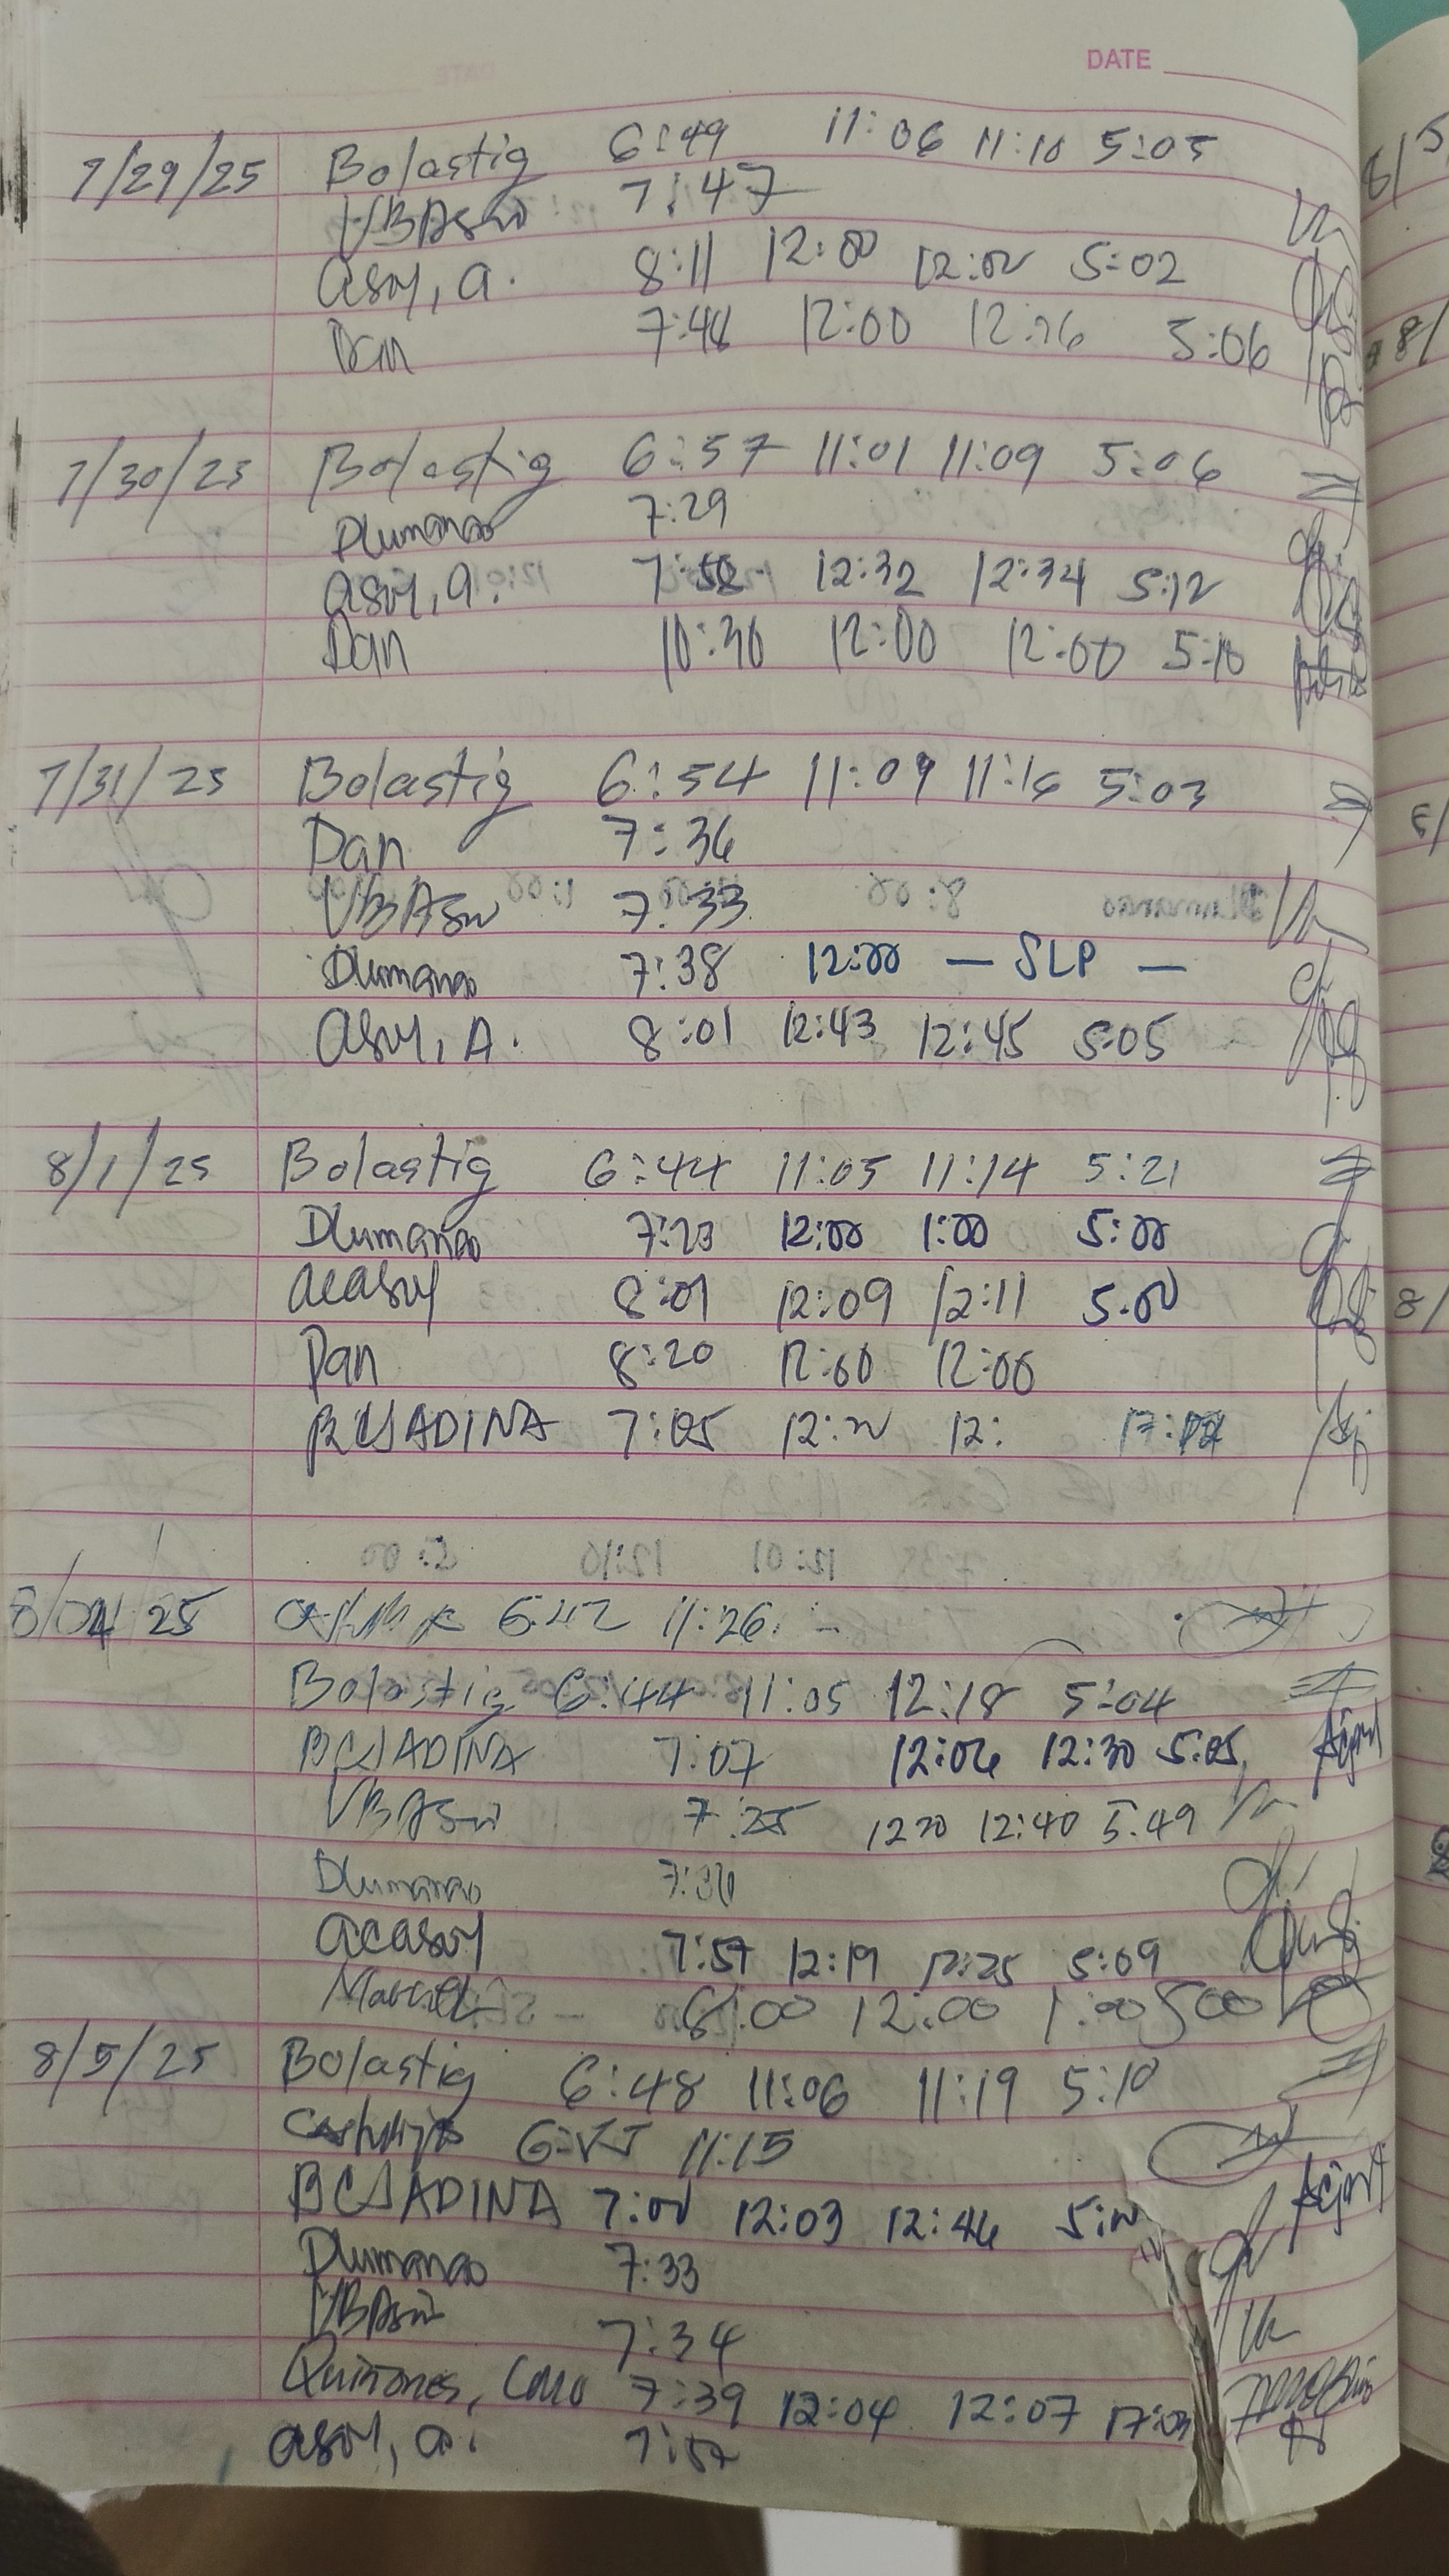 DATE
7/29/25 Bolastig 6:49 11:06 11:10 5:05
VBAsur 7:47
asoy, a. 8:11 12:00 12:02 5:02
Dan 7:48 12:00 12:16 5:06
7/30/25 Bolastig 6:57 11:01 11:09 5:06
Dlumanao 7:29
asoy, a. 12:32 12:34 5:12
Dan 10:30 12:00 12:00 5:10
7/31/25 Bolastig 6:54 11:09 11:16 5:03
Dan 7:36
VBAsur 7:33
Dlumanao 7:38 12:00 — SLP —
asoy, A. 8:01 12:43 12:45 5:05
8/1/25 Bolastig 6:44 11:05 11:14 5:21
Dlumanao 7:23 12:00 1:00 5:00
acasoy 8:01 12:09 12:11 5:00
Dan 8:20 12:00 12:00
BCSADINA 7:05 12: 12:
8/04/25 6:42 11:26
Bolastig 6:44 11:05 12:18 5:04
BCSADINA 7:07 12:06 12:30 5:05
VBAsur 7:25 1220 12:40 5:49
Dlumanao
acasoy 7:57 12:19 12:25 5:09
8:00 12:00 1:00 500
8/5/25 Bolastig 6:48 11:06 11:19 5:10
11:15
BCSADINA 7:00 12:03 12:46
Dlumanao 7:33
VBAsur 7:34
Quiñones, 7:39 12:04 12:07 17:03
asoy, a. 7:57